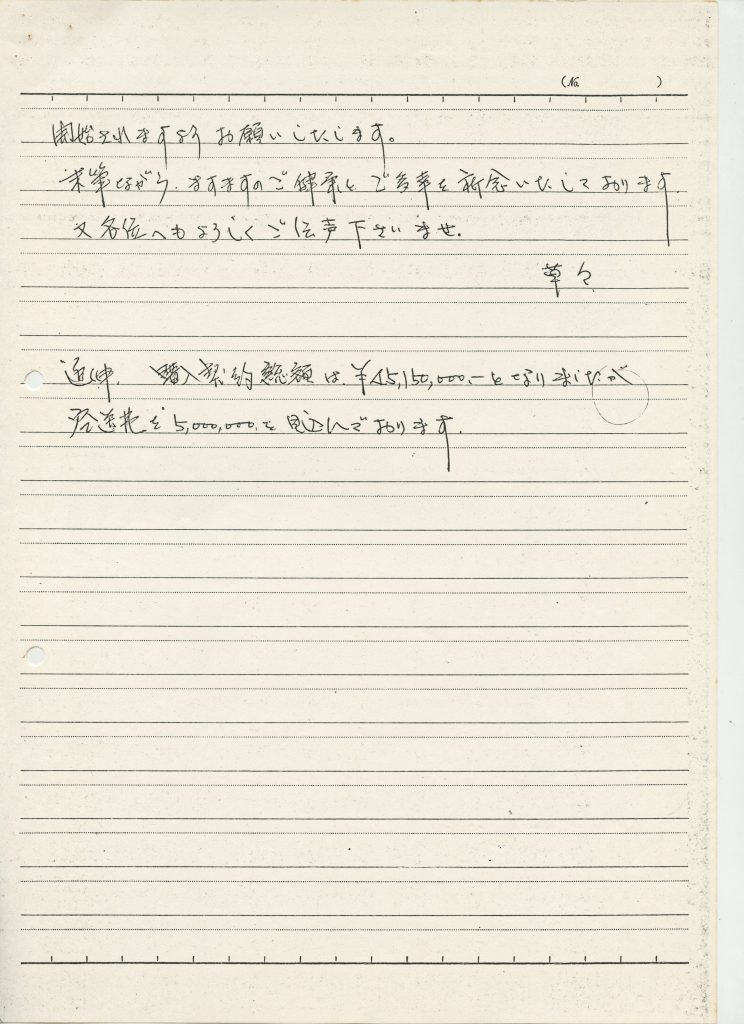 (No. )
開始されますよう お願いいたします。
末筆ながら、ますますのご健康と ご多幸を 祈念いたしております.
又 各位へも よろしく ご伝声 下さいませ.
草々
追伸. 購入契約総額は、¥45,150,000.-と なりましたが
発送費を 5,000,000.を 見込んでおります.